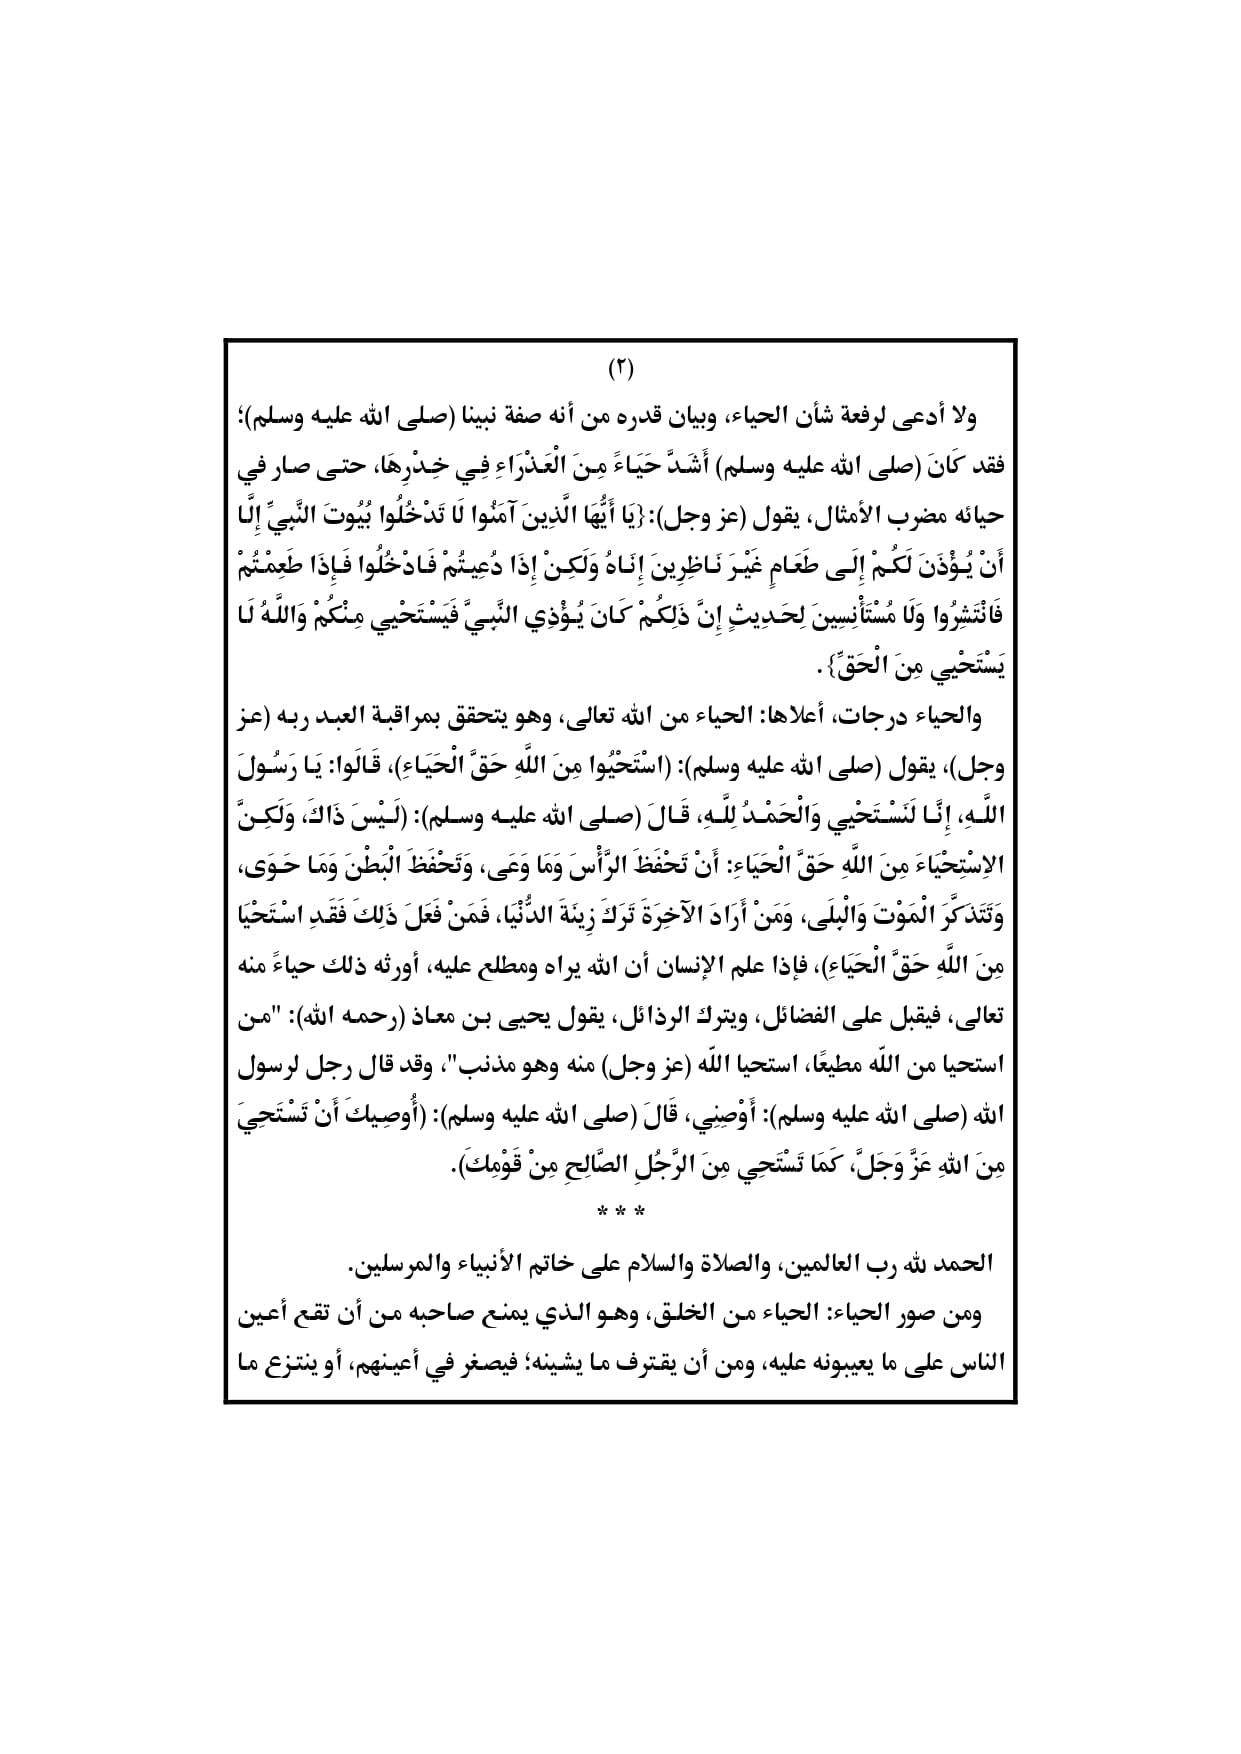 (٢)
ولا أدعى لرفعة شأن الحياء، وبيان قدره من أنه صفة نبينا (صلى الله عليه وسلم)؛
فقد كَانَ (صلى الله عليه وسلم) أَشَدَّ حَيَاءً مِنَ الْعَذْرَاءِ فِي خِدْرِهَا، حتى صار في
حيائه مضرب الأمثال، يقول (عز وجل):{يَا أَيُّهَا الَّذِينَ آمَنُوا لَا تَدْخُلُوا بُيُوتَ النَّبِيِّ إِلَّا
أَنْ يُؤْذَنَ لَكُمْ إِلَى طَعَامٍ غَيْرَ نَاظِرِينَ إِنَاهُ وَلَكِنْ إِذَا دُعِيتُمْ فَادْخُلُوا فَإِذَا طَعِمْتُمْ
فَانْتَشِرُوا وَلَا مُسْتَأْنِسِينَ لِحَدِيثٍ إِنَّ ذَلِكُمْ كَانَ يُؤْذِي النَّبِيَّ فَيَسْتَحْيِي مِنْكُمْ وَاللَّهُ لَا
يَسْتَحْيِي مِنَ الْحَقِّ}.
والحياء درجات، أعلاها: الحياء من الله تعالى، وهو يتحقق بمراقبة العبد ربه (عز
وجل)، يقول (صلى الله عليه وسلم): (اسْتَحْيُوا مِنَ اللَّهِ حَقَّ الْحَيَاءِ)، قَالُوا: يَا رَسُولَ
اللَّهِ، إِنَّا لَنَسْتَحْيِي وَالْحَمْدُ لِلَّهِ، قَالَ (صلى الله عليه وسلم): (لَيْسَ ذَاكَ، وَلَكِنَّ
الاِسْتِحْيَاءَ مِنَ اللَّهِ حَقَّ الْحَيَاءِ: أَنْ تَحْفَظَ الرَّأْسَ وَمَا وَعَى، وَتَحْفَظَ الْبَطْنَ وَمَا حَوَى،
وَتَتَذَكَّرَ الْمَوْتَ وَالْبِلَى، وَمَنْ أَرَادَ الآخِرَةَ تَرَكَ زِينَةَ الدُّنْيَا، فَمَنْ فَعَلَ ذَلِكَ فَقَدِ اسْتَحْيَا
مِنَ اللَّهِ حَقَّ الْحَيَاءِ)، فإذا علم الإنسان أن الله يراه ومطلع عليه، أورثه ذلك حياءً منه
تعالى، فيقبل على الفضائل، ويترك الرذائل، يقول يحيى بن معاذ (رحمه الله): "من
استحيا من اللّه مطيعًا، استحيا اللّه (عز وجل) منه وهو مذنب"، وقد قال رجل لرسول
الله (صلى الله عليه وسلم): أَوْصِنِي، قَالَ (صلى الله عليه وسلم): (أُوصِيكَ أَنْ تَسْتَحِيَ
مِنَ اللهِ عَزَّ وَجَلَّ، كَمَا تَسْتَحِي مِنَ الرَّجُلِ الصَّالِحِ مِنْ قَوْمِكَ).
* * *
الحمد لله رب العالمين، والصلاة والسلام على خاتم الأنبياء والمرسلين.
ومن صور الحياء: الحياء من الخلق، وهو الذي يمنع صاحبه من أن تقع أعين
الناس على ما يعيبونه عليه، ومن أن يقترف ما يشينه؛ فيصغر في أعينهم، أو ينتزع ما